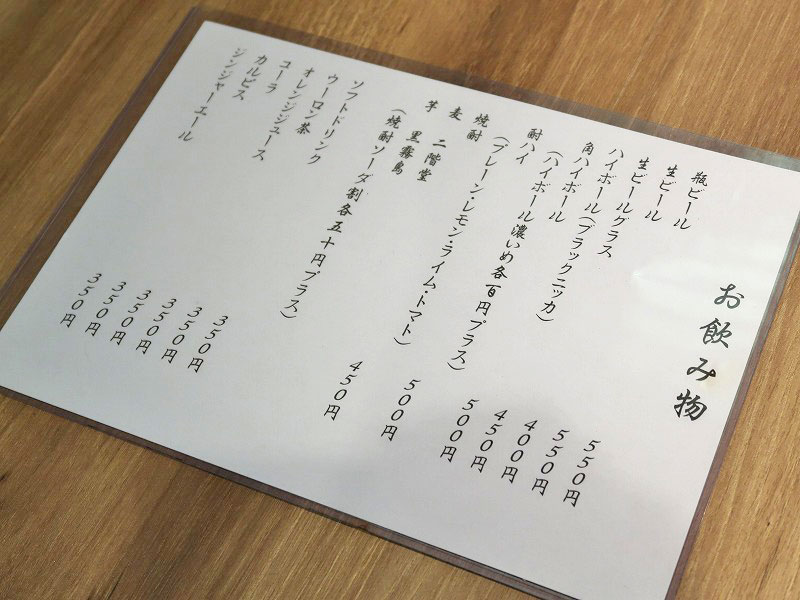 お飲み物
瓶ビール 550円
生ビール 550円
生ビールグラス 400円
ハイボール(ブラックニッカ) 450円
角ハイボール 500円
(ハイボール濃いめ各百円プラス)
酎ハイ 500円
(プレーン・レモン・ライム・トマト)
焼酎 450円
麦 二階堂
芋 黒霧島
(焼酎ソーダ割各五十円プラス)
ソフトドリンク 350円
ウーロン茶 350円
オレンジジュース 350円
コーラ 350円
カルピス 350円
ジンジャーエール 350円